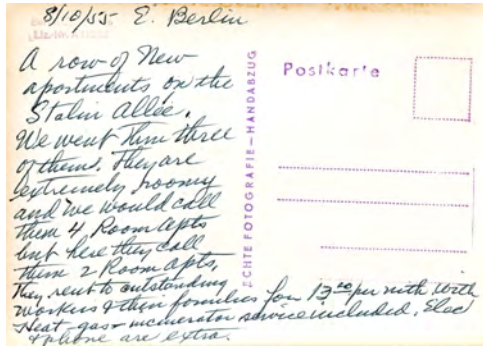 8/10/55 E. Berlin
A row of New
apartments on the
Stalin Allée.
We went thru three
of them. They are
extremely roomy
and we would call
them 4 Room apts
but here they call
them 2 Room apts.
They rent to outstanding
workers & their families for 13.20 per mth with
Heat, gas & incinerator service included. Elec
& phone are extra.
ECHTE FOTOGRAFIE – HANDABZUG
Postkarte